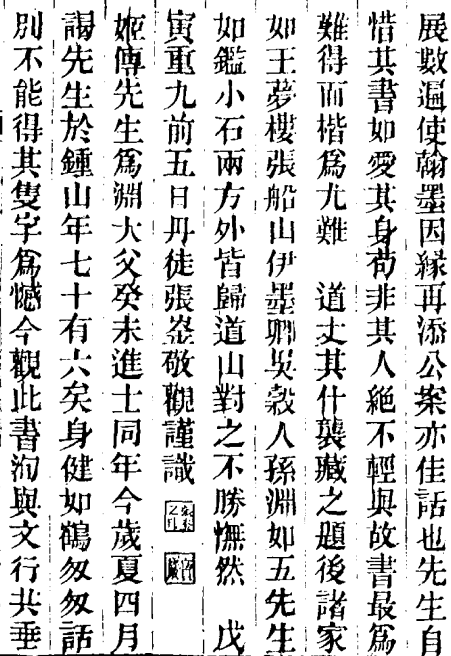 展數遍使翰墨因緣再添公案亦佳話也先生自
惜其書如愛其身苟非其人絶不輕與故書最爲
難得而楷爲尤難　道丈其什襲藏之題後諸家
如王夢樓張船山伊墨卿吳榖人孫淵如五先生
如鑑小石兩方外皆歸道山對之不勝憮然　戊
寅重九前五日丹徒張崟敬觀謹識
姬傳先生爲淵大父癸未進士同年今歲夏四月
謁先生於鍾山年七十有六矣身健如鶴匆匆話
別不能得其隻字爲憾今觀此書洵與文行共垂